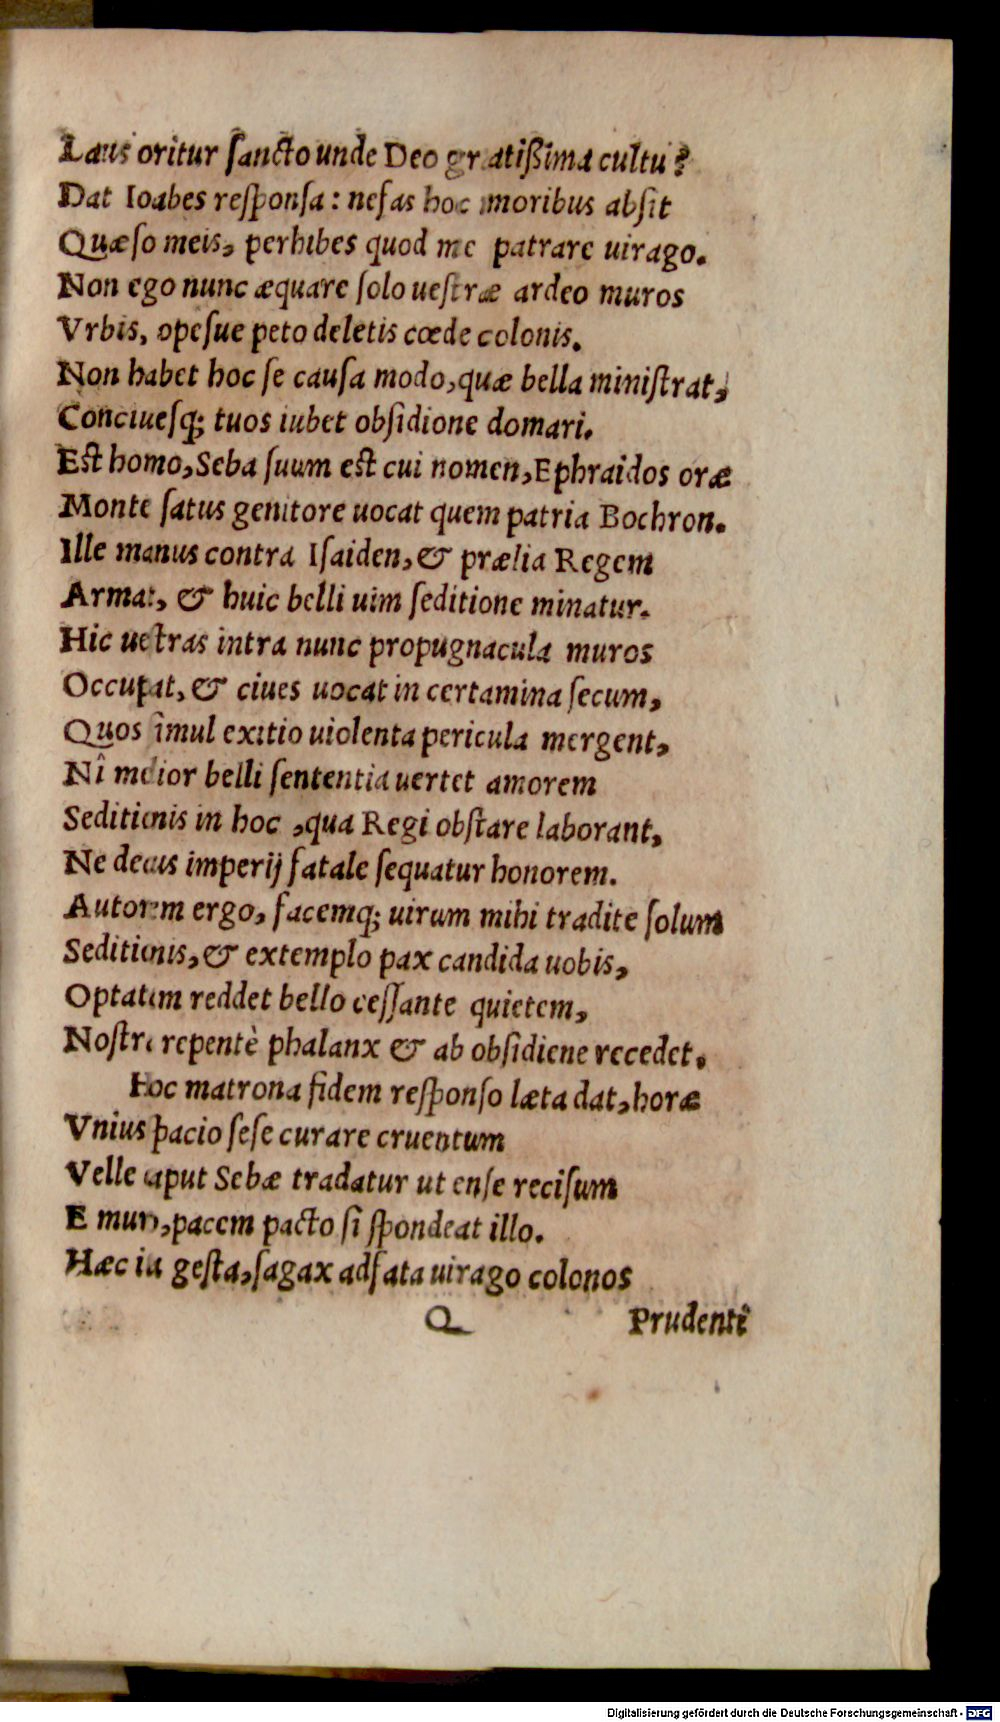 Laus oritur ſancto unde Deo gratiſsima cultu?
Dat Ioabes reſponſa: nefas hoc moribus abſit
Quæſo meis, perhibes quod me patrare uirago.
Non ego nunc æquare ſolo ueſtræ ardeo muros
Vrbis, opeſue peto deletis cœde colonis.
Non habet hoc ſe cauſa modo, quæ bella miniſtrat,
Conciueſq; tuos iubet obſidione domari.
Eſt homo, Seba ſuum eſt cui nomen, Ephraidos oræ
Monte ſatus genitore uocat quem patria Bochron.
Ille manus contra Iſaiden, & prælia Regem
Armat, & huic belli uim ſeditione minatur.
Hic ueſtras intra nunc propugnacula muros
Occupat, & ciues uocat in certamina ſecum,
Quos ſimul exitio uiolenta pericula mergent,
Nî melior belli ſententia uertet amorem
Seditionis in hoc, qua Regi obſtare laborant,
Ne decus imperij fatale ſequatur honorem.
Autorem ergo, facemq; uirum mihi tradite ſolum
Seditionis, & extemplo pax candida uobis,
Optatam reddet bello ceſſante quietem,
Noſtra repentè phalanx & ab obſidione recedet.
Hoc matrona fidem reſponſo læta dat, horæ
Vnius ſpacio ſeſe curare cruentum
Velle caput Sebæ tradatur ut enſe reciſum
E muro, pacem pacto ſi ſpondeat illo.
Hæc ita geſta, ſagax adfata uirago colonos
Q Prudenti
Digitalisierung gefördert durch die Deutsche Forschungsgemeinschaft - DFG